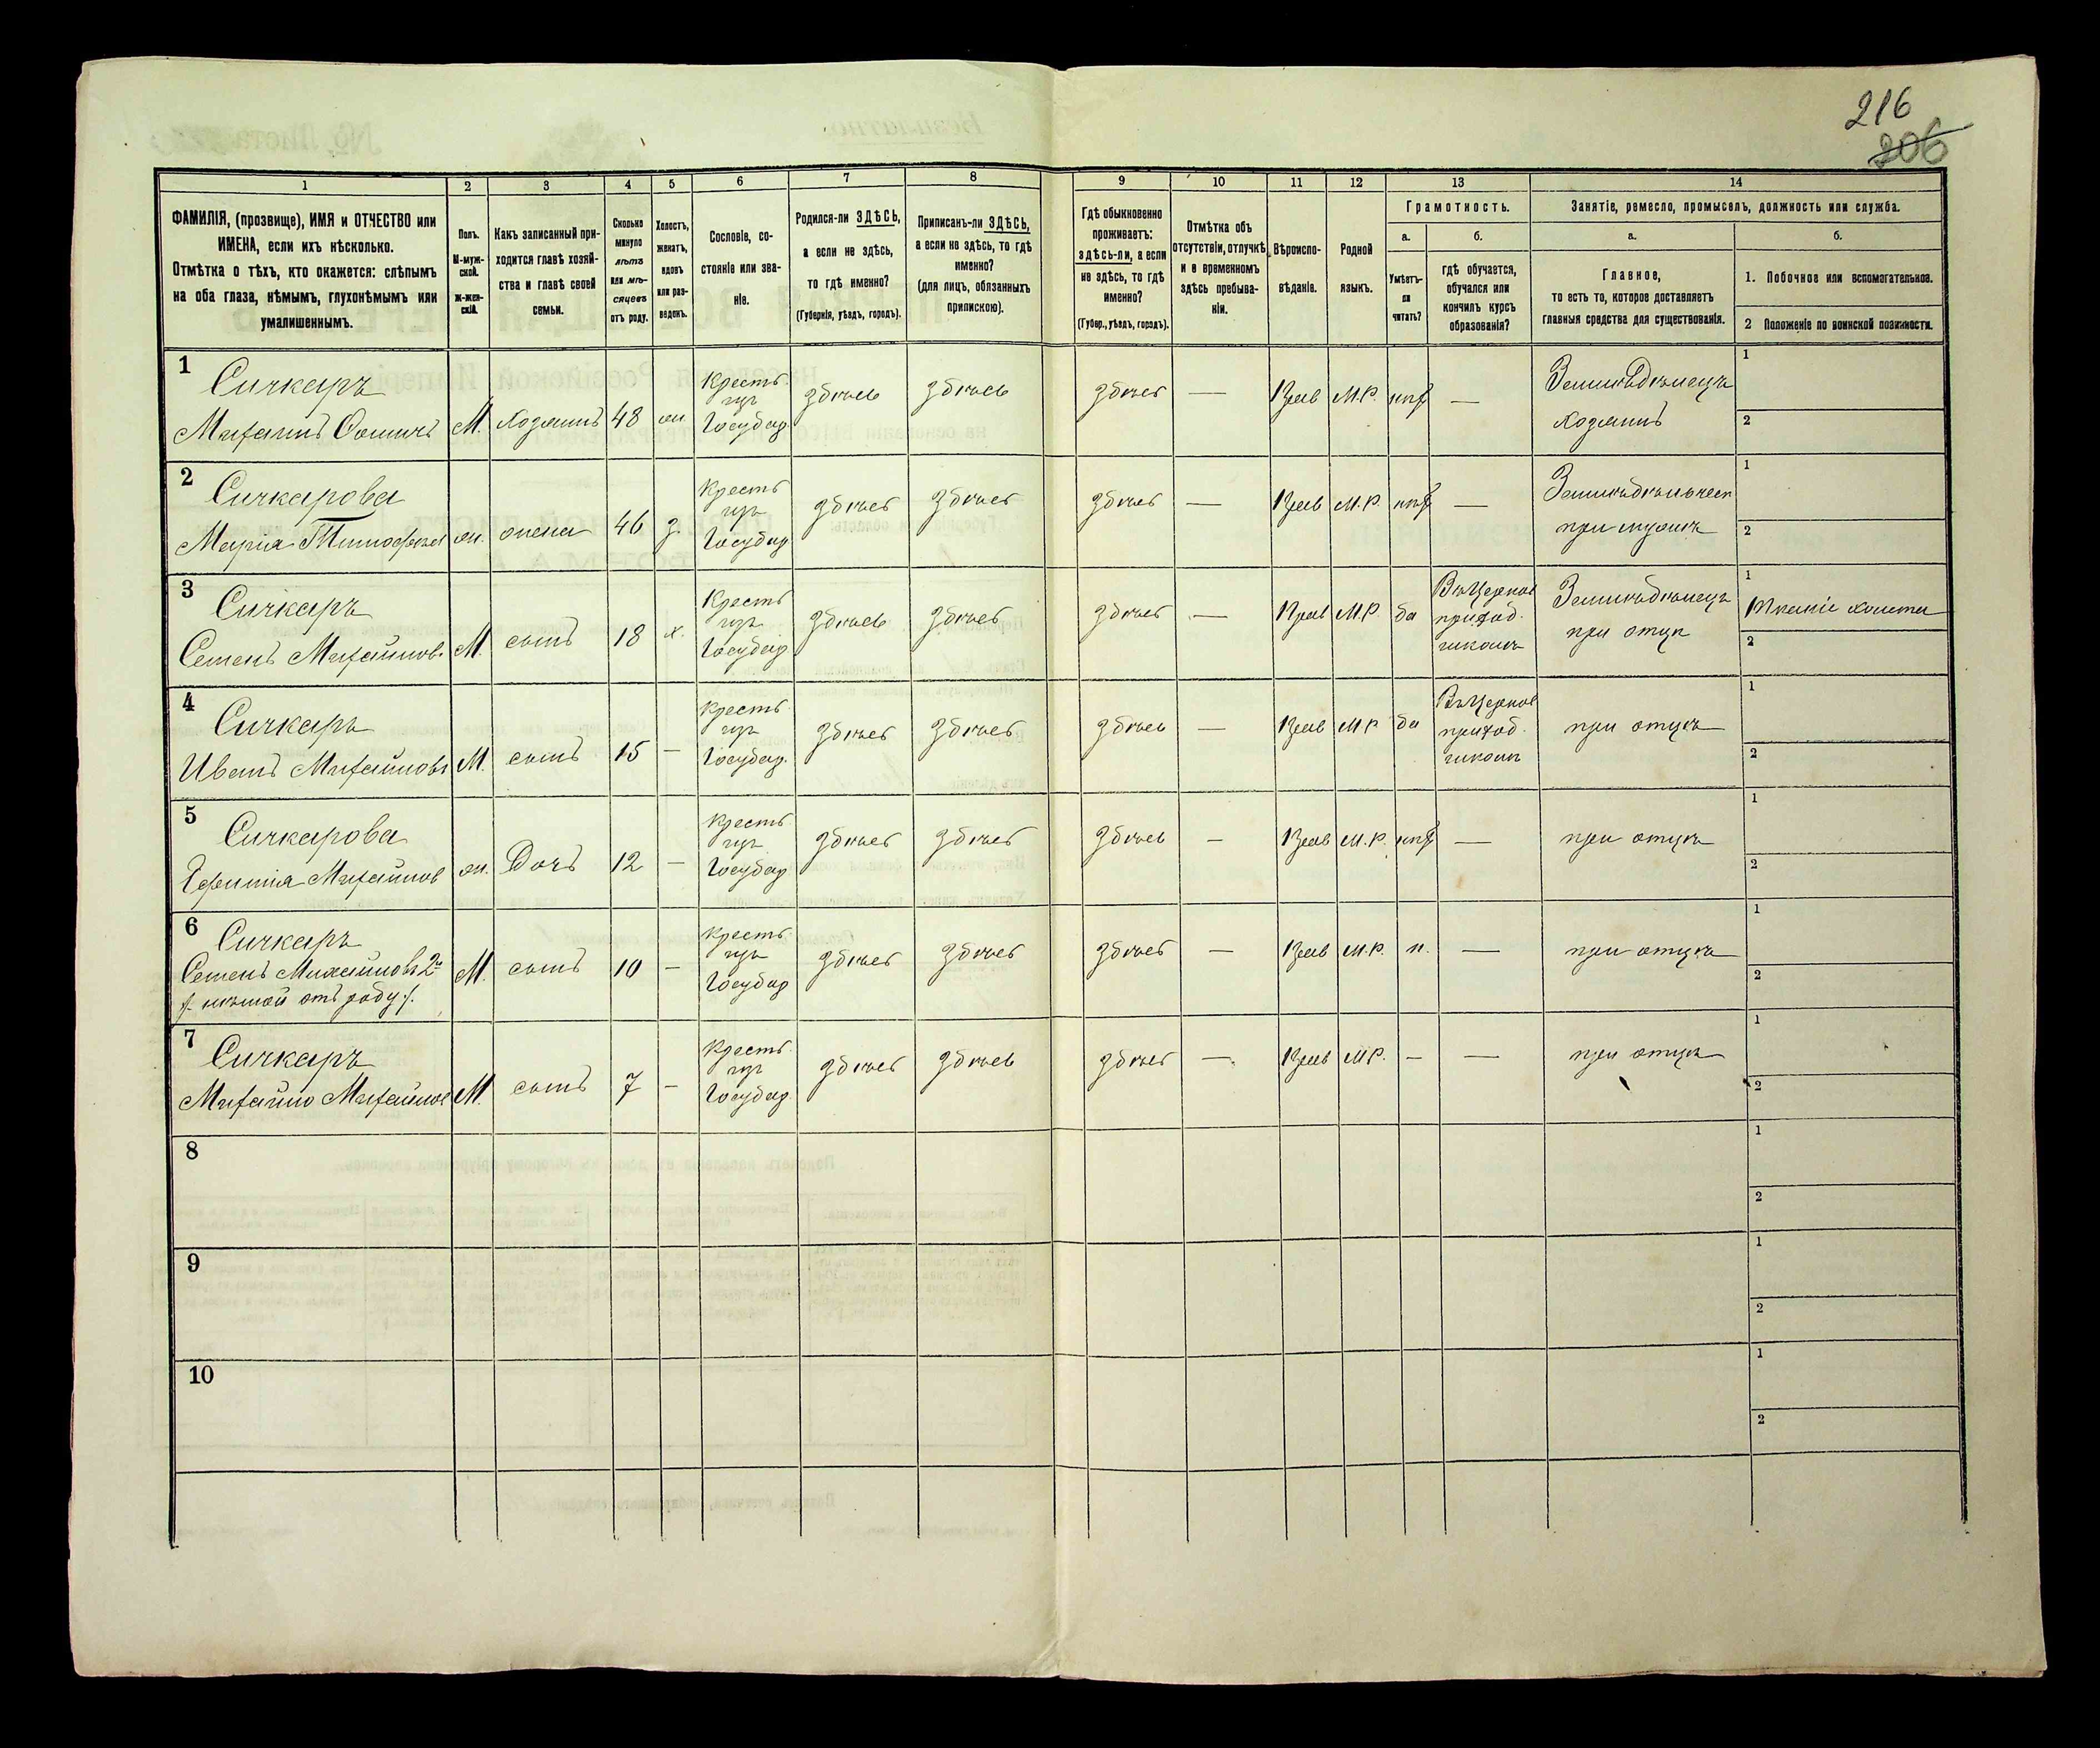 216
206
1
2
3
4
5
6
7
8
ФАМИЛІЯ, (прозвище), ИМЯ и ОТЧЕСТВО или
ИМЕНА, если ихъ нѣсколько.
Отмѣтка о тѣхъ, кто окажется: слѣпымъ
на оба глаза, нѣмымъ, глухонѣмымъ или
умалишеннымъ.
Полъ.
М-муж-
ской.
ж-жен-
скій.
Какъ записанный при-
ходится главѣ хозяй-
ства и главѣ своей
семьи.
Сколько
минуло
лѣтъ
или мѣ-
сяцевъ
отъ роду.
Холостъ,
женатъ,
вдовъ
или раз-
веденъ.
Сословіе, со-
стояніе или зва-
ніе.
Родился-ли ЗДѢСЬ,
а если не здѣсь,
то гдѣ именно?
(Губернія, уѣздъ, городъ).
Приписанъ-ли ЗДѢСЬ,
а если не здѣсь, то гдѣ
именно?
(для лицъ, обязанныхъ
припискою).
9
10
11
12
13
14
Гдѣ обыкновенно
проживаетъ:
здѣсь-ли, а если
не здѣсь, то гдѣ
именно?
(Губер., уѣздъ, городъ).
Отмѣтка объ
отсутствіи, отлучкѣ
и о временномъ
здѣсь пребыва-
ніи.
Вѣроиспо-
вѣданіе.
Родной
языкъ.
Грамотность.
а.
Умѣетъ-
ли
читать?
б.
гдѣ обучается,
обучался или
кончилъ курсъ
образованія?
Занятіе, ремесло, промыселъ, должность или служба.
а.
Главное,
то есть то, которое доставляетъ
главныя средства для существованія.
б.
1. Побочное или вспомогательное.
2 Положеніе по воинской повинности.
1
Сичкаръ
Михаилъ М. хозяинъ 48 Крестъ Государ здѣсь здѣсь здѣсь — М.Р. —
Земледѣлецъ
хозяинъ
1
2
2
Сичкарова
Марія Тимофѣева ж. жена 46 з. Крестъ Государ здѣсь здѣсь здѣсь — М.Р. —
при мужѣ
1
2
3
Сичкаръ
Семенъ Михайлов. М. сынъ 18 х. Крестъ Государ здѣсь здѣсь здѣсь — Прав М.Р. да
Въ Церков
приход.
школѣ
Земледѣлецъ
при отцѣ
1 Тканіе холста
2
4
Сичкаръ
Иванъ Михайловъ М. сынъ 15 — Крестъ Государ. здѣсь здѣсь здѣсь — Прав М.Р. да
Въ Церков
приход.
школѣ
при отцѣ
1
2
5
Сичкарова
Михайлов ж. Дочь 12 — Крестъ Государ здѣсь здѣсь здѣсь — Прав М.Р. —
при отцѣ
1
2
6
Сичкаръ
Семенъ Михайловъ 2й
/. нѣмой отъ роду ./.
М. сынъ 10 — Крестъ Государ здѣсь здѣсь здѣсь — Прав М.Р. н. —
при отцѣ
1
2
7
Сичкаръ
Михайло Михайлов М. сынъ 7 — Крестъ Государ. здѣсь здѣсь здѣсь — Прав М.Р. — —
при отцѣ
1
2
8
1
2
9
1
2
10
1
2